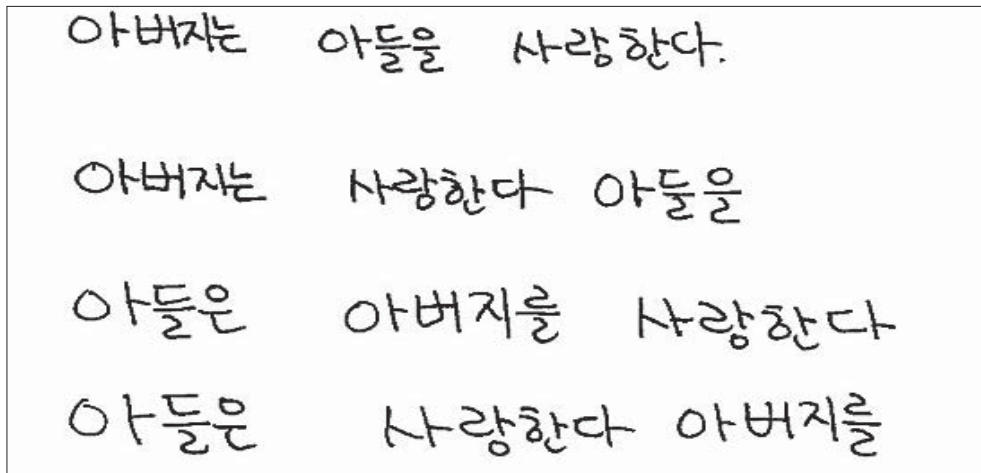 아버지는 아들을 사랑한다.
아버지는 사랑한다 아들을
아들은 아버지를 사랑한다
아들은 사랑한다 아버지를